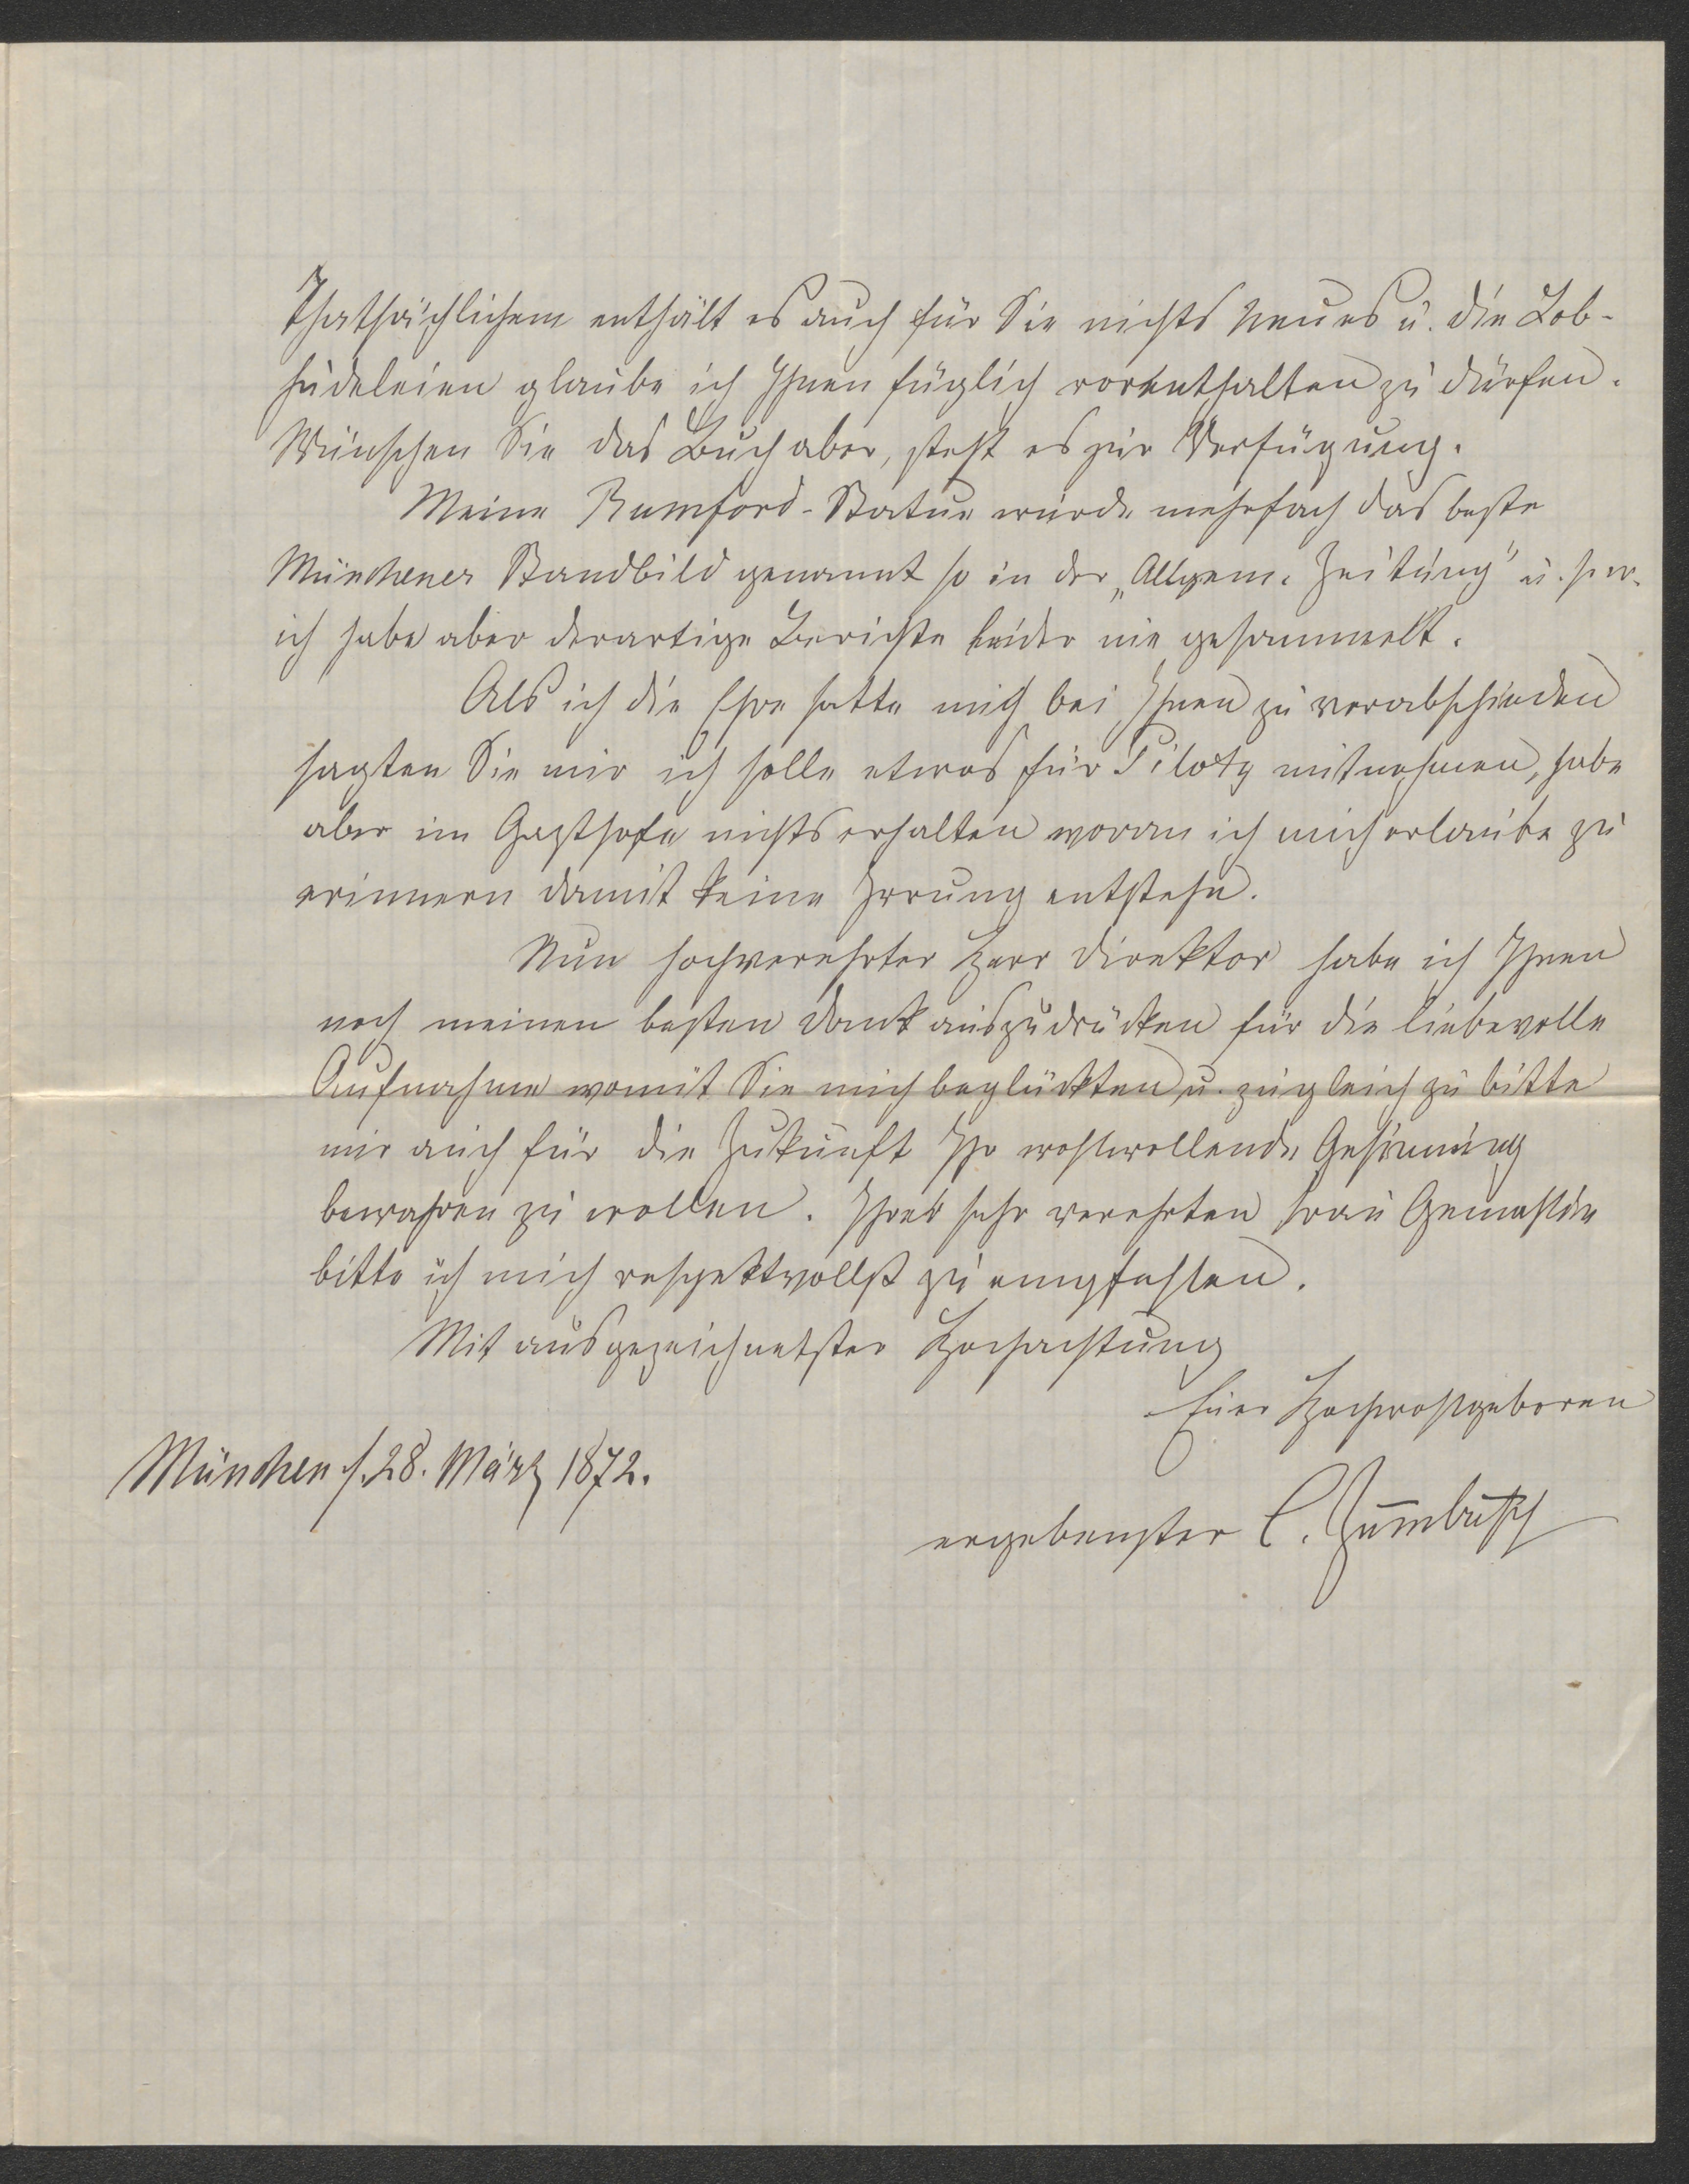 Thatsächlichem enthält es auch für Sie nichts Neues u. die Lob-
hudeleien glaube ich Ihnen füglich vorenthalten zu dürfen.
Wünschen Sie das Buch aber, steht es zur Verfügung.
Meine Rumford-Statue wurde mehrfach das beste
Münchener Standbild genannt so in der „Allgem. Zeitung" u. s. w.
ich habe aber derartige Berichte leider nie gesammelt.
Als ich die Ehre hatte mich bei Ihnen zu verabschieden
sagten Sie mir ich solle etwas für Piloty mitnehmen, habe
aber im Gasthofe nichts erhalten woran ich mich erlaube zu
erinnern damit keine Irrung entstehe.
Nun hochverehrter Herr Direktor habe ich Ihnen
noch meinen besten Dank auszudrücken für die liebevolle
Aufnahme womit Sie mich beglückten u. zugleich zu bitte
mir auch für die Zukunft Ihr wohlwollende Gesinnung
bewahren zu wollen. Ihrer sehr verehrten Frau Gemahlin
bitte ich mich respektvollst zu empfehlen.
Mit ausgezeichnetster Hochachtung
Euer Hochwohlgeboren
München d. 28. März 1872.
ergebenster C. Zumbusch